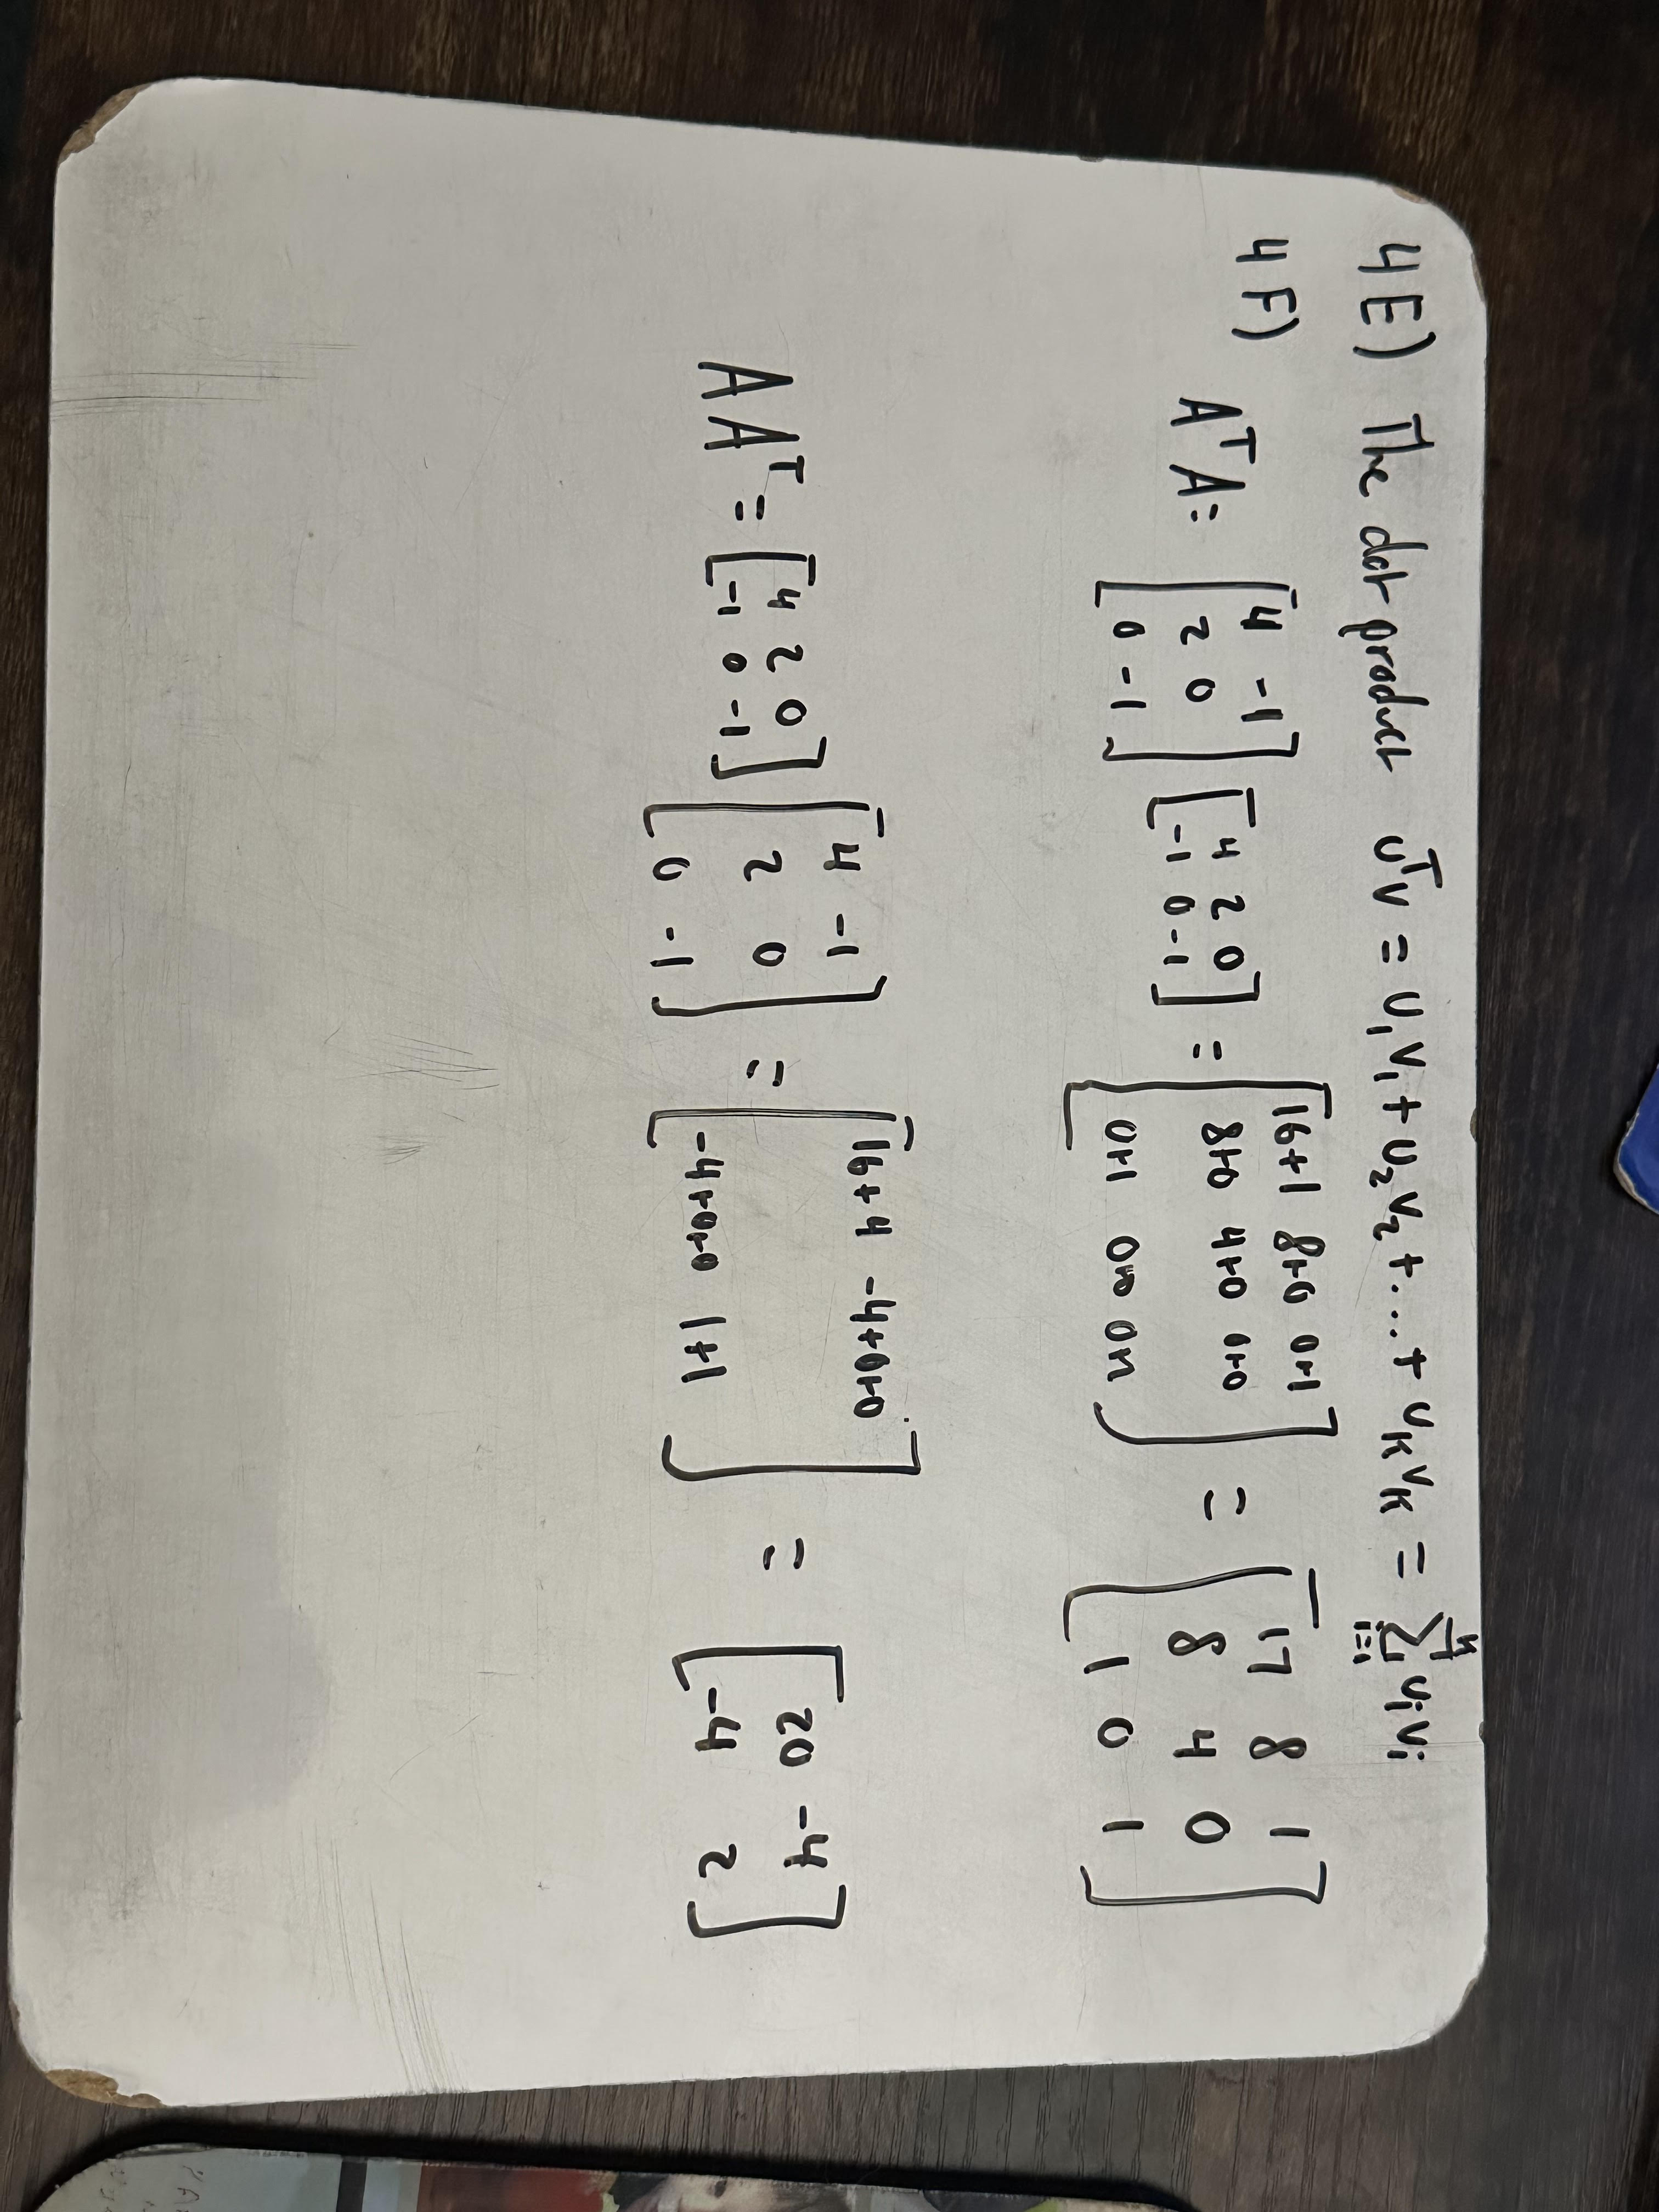 4E) The dot product uᵀv = u₁v₁ + u₂v₂ + ... + uₖvₖ = ∑ᵏᵢ₌₁ uᵢvᵢ
4F) AᵀA = [4 -1; 2 0; 0 -1] [4 2 0; -1 0 -1] = [16+1 8+0 0+1; 8+0 4+0 0+0; 0+1 0+0 0+1] = [17 8 1; 8 4 0; 1 0 1]
AAᵀ = [4 2 0; -1 0 -1] [4 -1; 2 0; 0 -1] = [16+4 -4+0+0; -4+0+0 1+1] = [20 -4; -4 2]